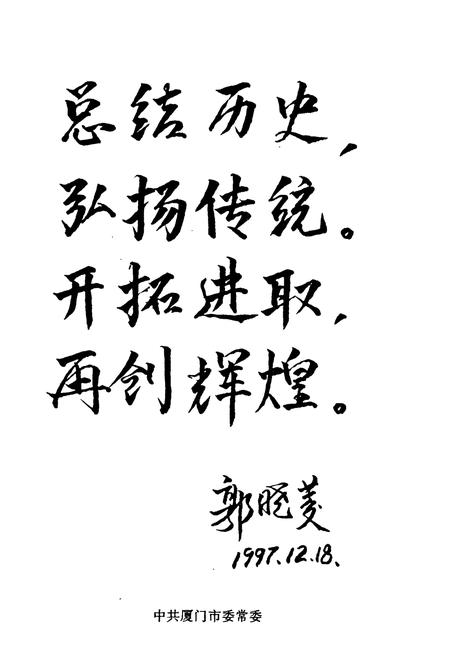 总结历史，
弘扬传统。
开拓进取，
再创辉煌。
郭晓菱
1997.12.18.
中共厦门市委常委